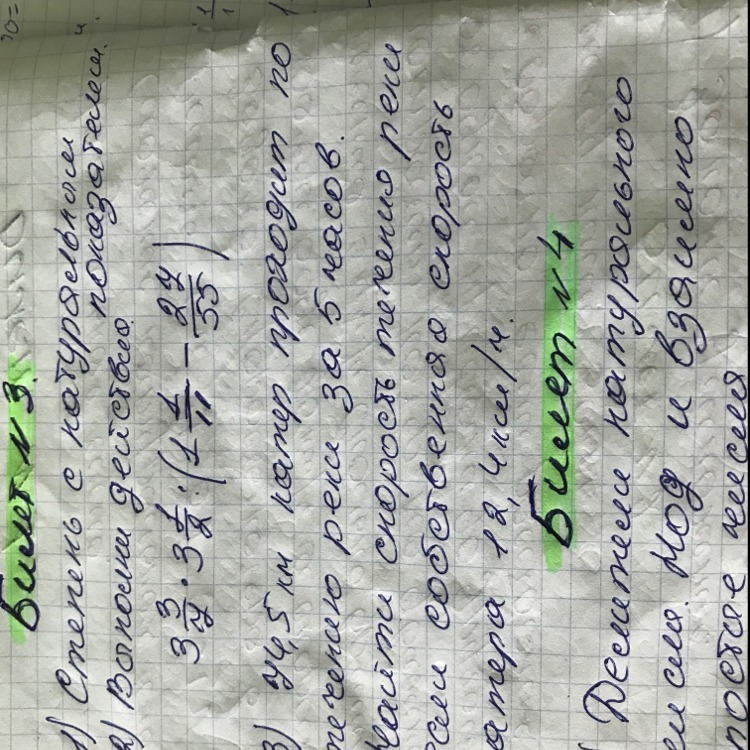 Билет N 3.
1) Степень с натуральным
показателем.
2) Выполни действия
3 3/7 · 3 1/2 : (1 1/11 - 27/55)
3) 74,5 км катер проходит по
течению реки за 5 часов.
Найти скорость течения реки
если собственная скорость
катера 12,4 км/ч.
Билет N 4
Делители натурального
числа. НОД и взаимно
простые числа